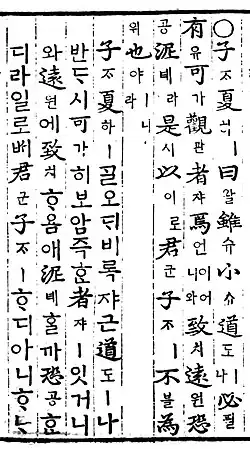 ○子ᄌᆞ夏하ㅣ曰왈雖슈小쇼道도ㅣ나必필
有유可가觀관者쟈焉언이어니와致치遠원恐
공泥녜라是시以이로君군子ᄌᆞㅣ不블為
위也야ㅣ니라
子ᄌᆞ夏하ㅣᄀᆞᆯ오ᄃᆡ비록쟈근道도ㅣ나
반ᄃᆞ시可가히보암즉ᄒᆞᆫ者쟈ㅣ잇거니
와遠원에致치ᄒᆞ욤애泥녜ᄒᆞᆯ까恐공ᄒᆞᆫ
디라일로ᄡᅥ君군子ᄌᆞㅣᄒᆞ디아니ᄒᆞᄂᆞ